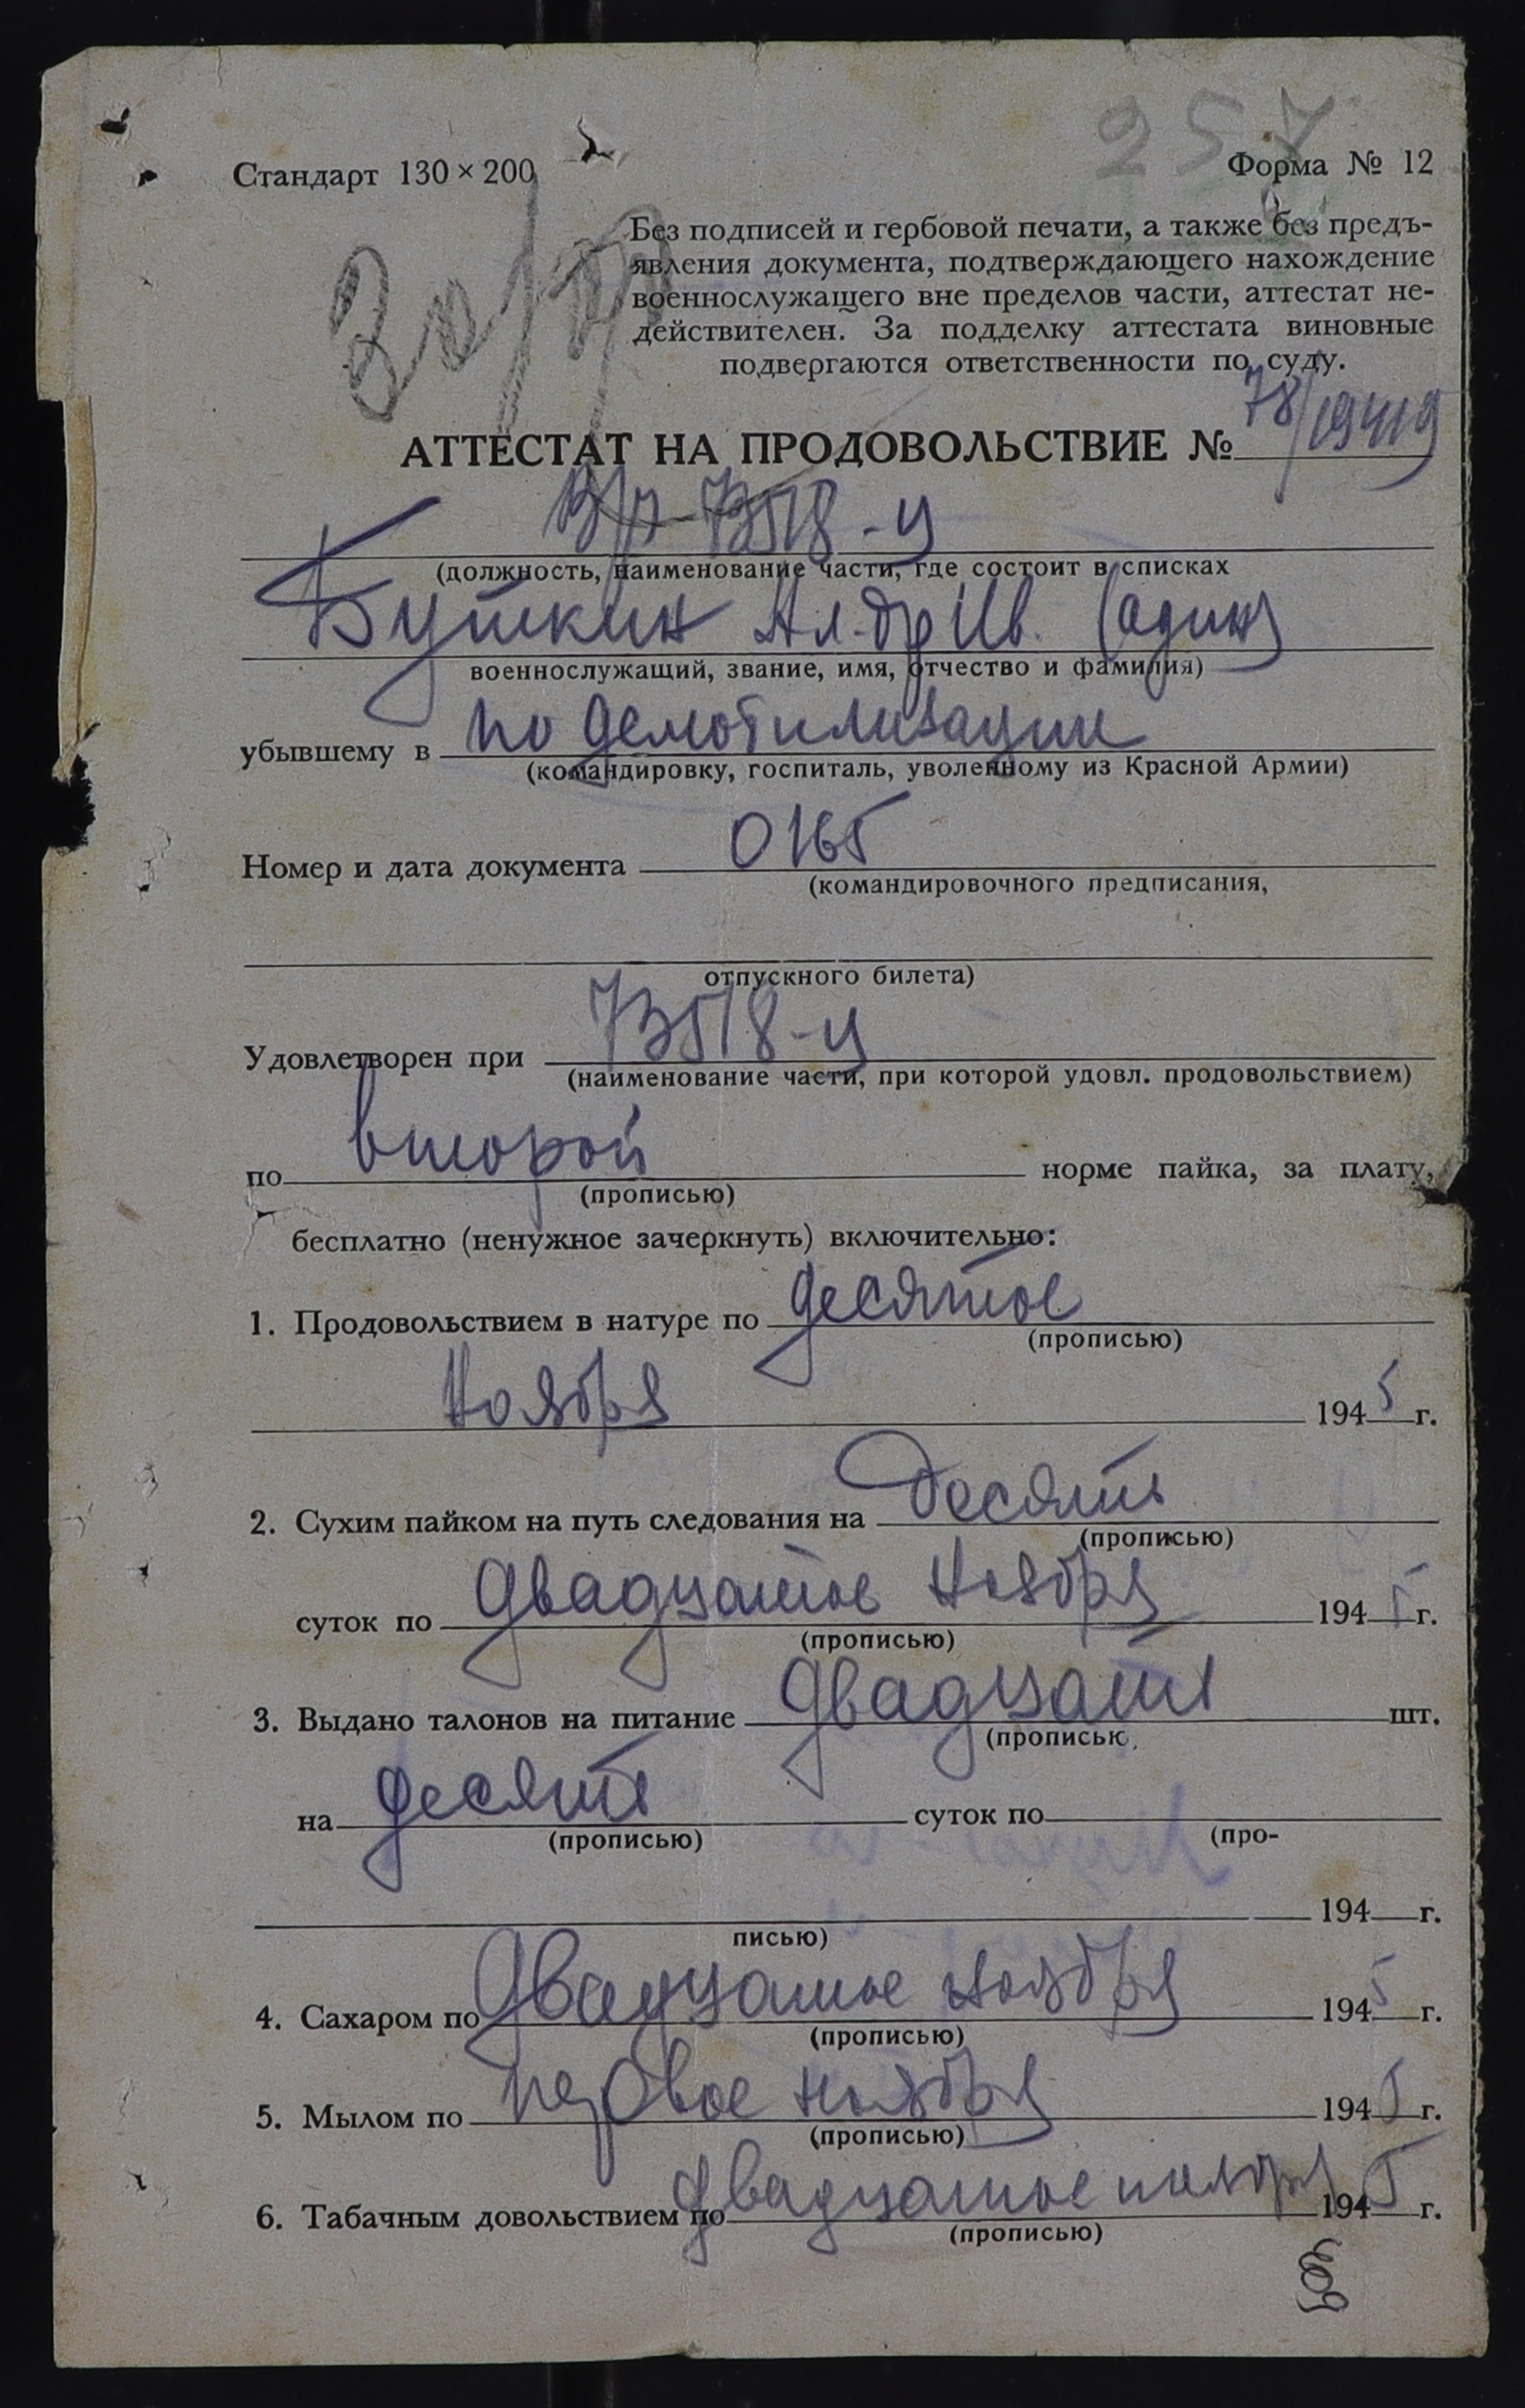 257
Стандарт 130×200 Форма № 12
Без подписей и гербовой печати, а также без предъ-
явления документа, подтверждающего нахождение
военнослужащего вне пределов части, аттестат не-
действителен. За подделку аттестата виновные
подвергаются ответственности по суду.
АТТЕСТАТ НА ПРОДОВОЛЬСТВИЕ № 78/
73518-ц
(должность, наименование части, где состоит в списках
Буткин Ал-др Ив. (один)
военнослужащий, звание, имя, отчество и фамилия)
убывшему в по демобилизации
(командировку, госпиталь, уволенному из Красной Армии)
Номер и дата документа 0165
(командировочного предписания,
отпускного билета)
Удовлетворен при 73518-ц
(наименование части, при которой удовл. продовольствием)
по второй норме пайка, за плату,
(прописью)
бесплатно (ненужное зачеркнуть) включительно:
1. Продовольствием в натуре по десятое
(прописью)
Ноября 1945 г.
2. Сухим пайком на путь следования на десять
(прописью)
суток по двадцатое Ноября 1945 г.
(прописью)
3. Выдано талонов на питание двадцать шт.
(прописью,
на десять суток по
(прописью) (про-
194 г.
писью)
4. Сахаром по двадцатое ноября 1945 г.
(прописью)
5. Мылом по первое ноября 1945 г.
(прописью)
6. Табачным довольствием по двадцатое ноября 1945 г.
(прописью)